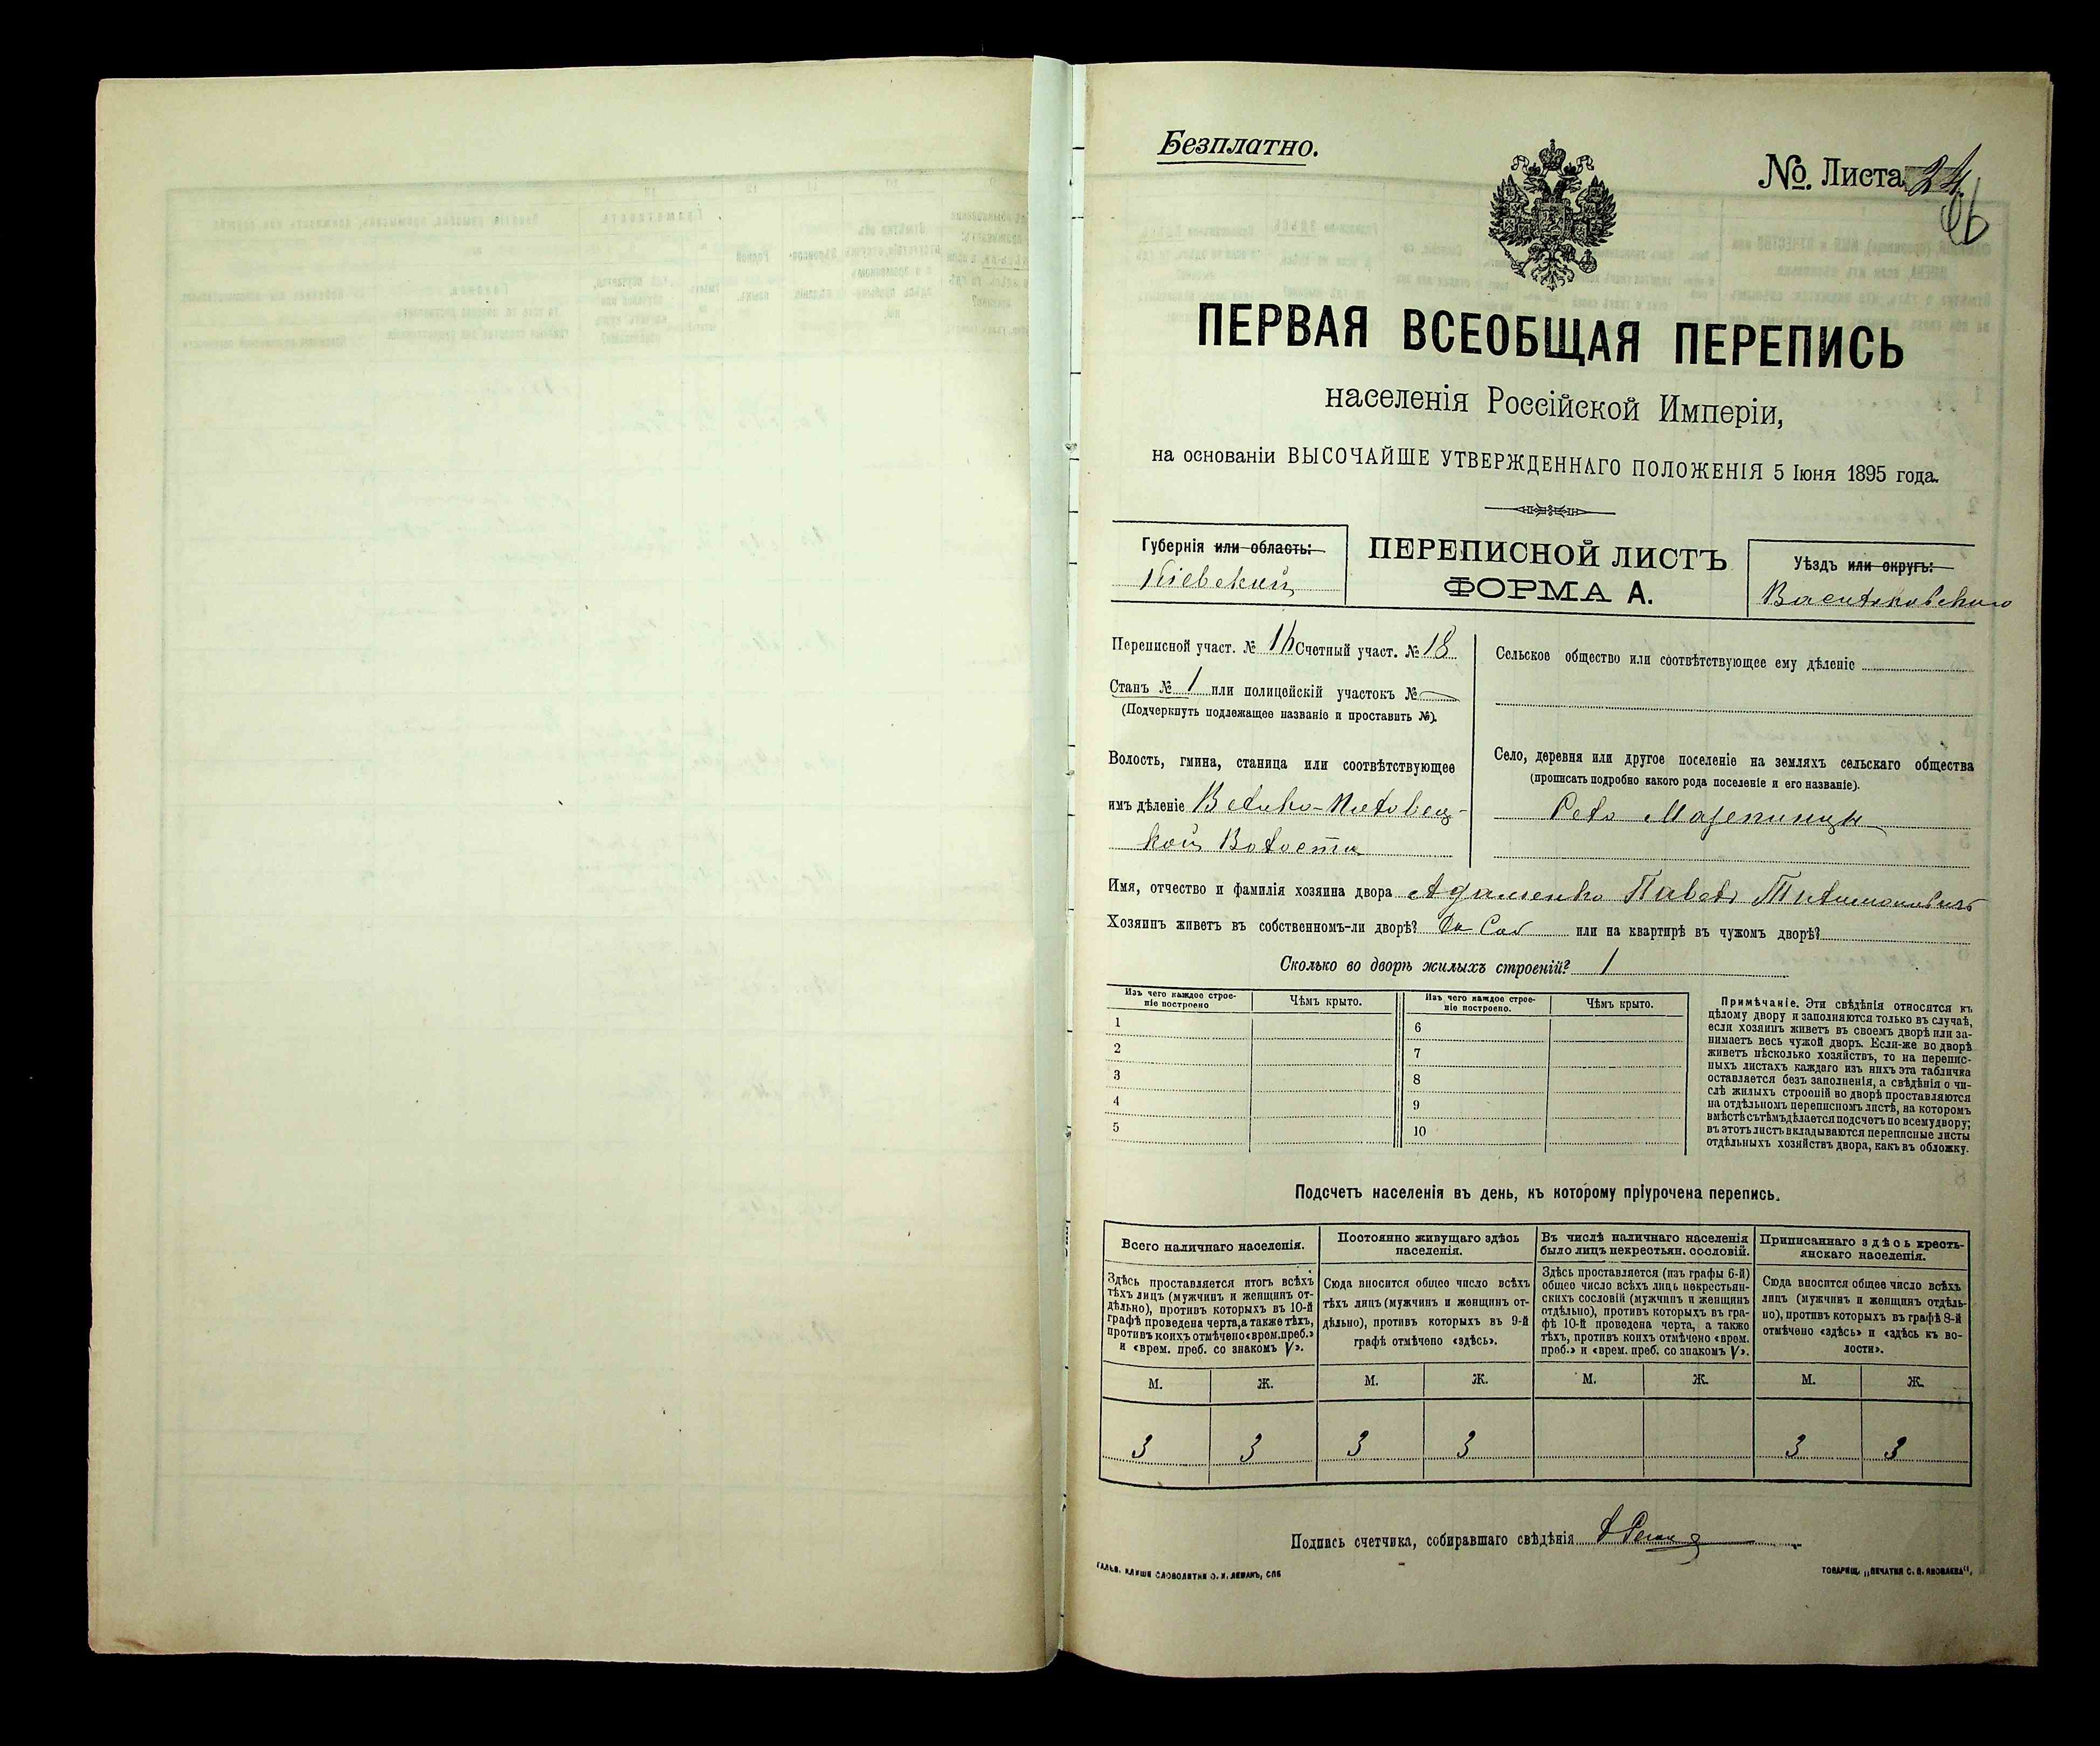 Безплатно.
№ Листа 24
66
ПЕРВАЯ ВСЕОБЩАЯ ПЕРЕПИСЬ
населенія Россійской Имперіи,
на основаніи ВЫСОЧАЙШЕ УТВЕРЖДЕННАГО ПОЛОЖЕНІЯ 5 Іюня 1895 года.
Губернія или область:
Кіевскій
ПЕРЕПИСНОЙ ЛИСТЪ
ФОРМА А.
Уѣздъ или округъ:
Васильковскаго
Переписной участ. № Счетный участ. № 18
Станъ № 1 или полицейскій участокъ №
(Подчеркнуть подлежащее названіе и проставить №).
Волость, гмина, станица или соотвѣтствующее
имъ дѣленіе Велико-Половец-
кой Волости
Сельское общество или соотвѣтствующее ему дѣленіе
Село, деревня или другое поселеніе на земляхъ сельскаго общества
(прописать подробно какого рода поселеніе и его названіе).
Село Мазепинцы
Имя, отчество и фамилія хозяина двора Адаменко Павелъ
Хозяинъ живетъ въ собственномъ-ли дворѣ? или на квартирѣ въ чужомъ дворѣ?
Сколько во дворѣ жилыхъ строеній? 1
Изъ чего каждое строе-
ніе построено
Чѣмъ крыто.
Изъ чего каждое строе-
ніе построено.
Чѣмъ крыто.
1
2
3
4
5
6
7
8
9
10
Примѣчаніе. Эти свѣдѣнія относятся къ
цѣлому двору и заполняются только въ случаѣ,
если хозяинъ живетъ въ своемъ дворѣ или за-
нимаетъ весь чужой дворъ. Если-же во дворѣ
живетъ нѣсколько хозяйствъ, то на перепис-
ныхъ листахъ каждаго изъ нихъ эта табличка
оставляется безъ заполненія, а свѣдѣнія о чи-
слѣ жилыхъ строеній во дворѣ проставляются
на отдѣльномъ переписномъ листѣ, на которомъ
вмѣстѣ съ тѣмъ дѣлается подсчетъ по всему двору;
въ этотъ листъ вкладываются переписные листы
отдѣльныхъ хозяйствъ двора, какъ въ обложку.
Подсчетъ населенія въ день, къ которому пріурочена перепись.
Всего наличнаго населенія.
Здѣсь проставляется итогъ всѣхъ
тѣхъ лицъ (мужчинъ и женщинъ от-
дѣльно), противъ которыхъ въ 10-й
графѣ проведена черта, а также тѣхъ,
противъ коихъ отмѣчено «врем. преб.»
и «врем. преб. со знакомъ V».
Постоянно живущаго здѣсь
населенія.
Сюда вносится общее число всѣхъ
тѣхъ лицъ (мужчинъ и женщинъ от-
дѣльно), противъ которыхъ въ 9-й
графѣ отмѣчено «здѣсь».
Въ числѣ наличнаго населенія
было лицъ некрестьян. сословій.
Здѣсь проставляется (изъ графы 6-й)
общее число всѣхъ лицъ некрестьян-
скихъ сословій (мужчинъ и женщинъ
отдѣльно), противъ которыхъ въ гра-
фѣ 10-й проведена черта, а также
тѣхъ, противъ коихъ отмѣчено «врем.
преб.» и «врем. преб. со знакомъ V».
Приписаннаго здѣсь кресть-
янскаго населенія.
Сюда вносится общее число всѣхъ
лицъ (мужчинъ и женщинъ отдѣль-
но), противъ которыхъ въ графѣ 8-й
отмѣчено «здѣсь» и «здѣсь къ во-
лости».
М. Ж. М. Ж. М. Ж. М. Ж.
3 3 3 3 3 3
Подпись счетчика, собиравшаго свѣдѣнія
ГАЛЬВ. КЛИШЕ СЛОВОЛИТНИ О. И. ЛЕМАНЪ, СПБ
ТОВАРИЩ. „ПЕЧАТНЯ С. П. ЯКОВЛЕВА“.